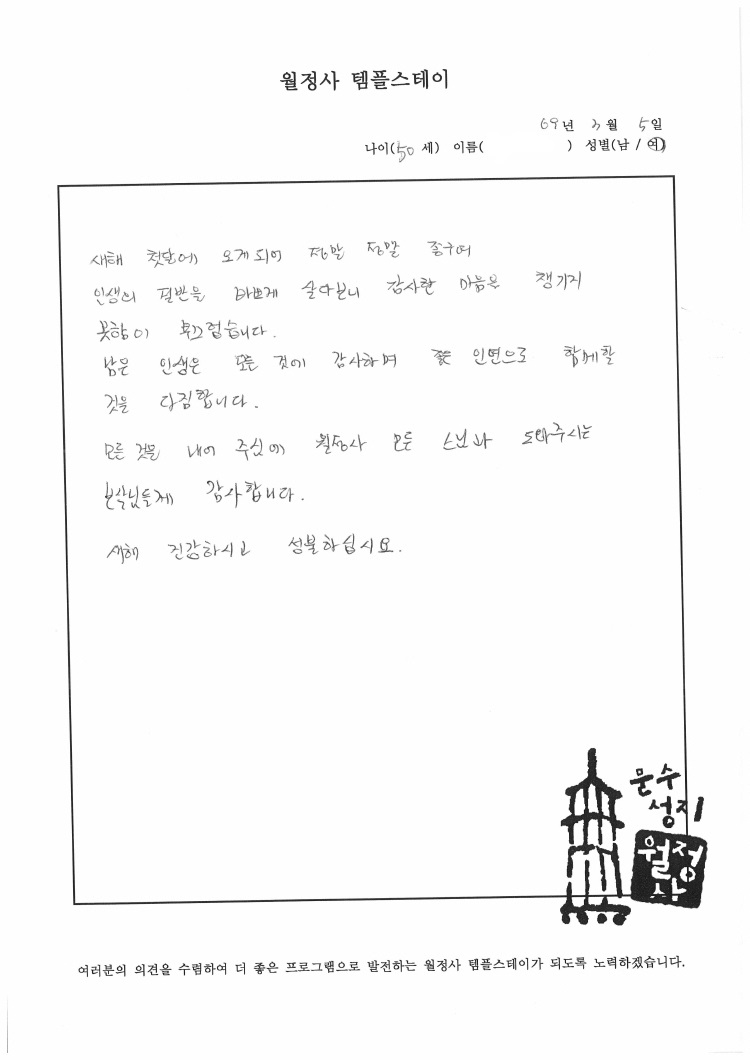 월정사 템플스테이
69년 3월 5일
나이(50 세) 이름( ) 성별(남 / 여)
새해 첫달에 오게 되어 정말 정말 좋구여
인생의 절반을 바쁘게 살다보니 감사한 마음을 챙기지
못함이 부끄럽습니다.
남은 인생은 모든 것에 감사하며 좋은 인연으로 함께할
것을 다짐합니다.
모든 것을 내어 주신 월정사 모든 스님과 도와주시는
보살님들께 감사합니다.
새해 건강하시고 성불하십시요.
문수
성지
월정
사
여러분의 의견을 수렴하여 더 좋은 프로그램으로 발전하는 월정사 템플스테이가 되도록 노력하겠습니다.